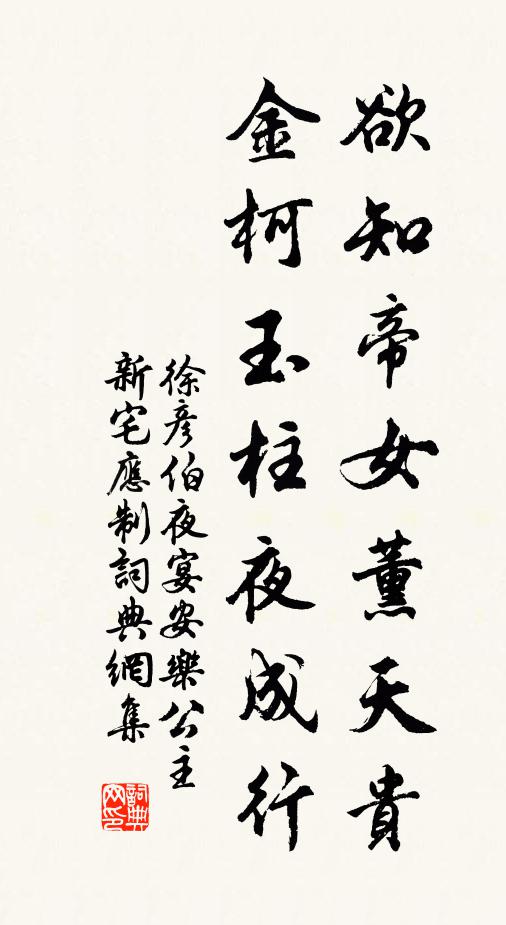 欲知帝女薰天貴
金柯玉柱夜成行
徐彦伯夜宴安樂公主
新宅應制詞典網集
詞典
网印